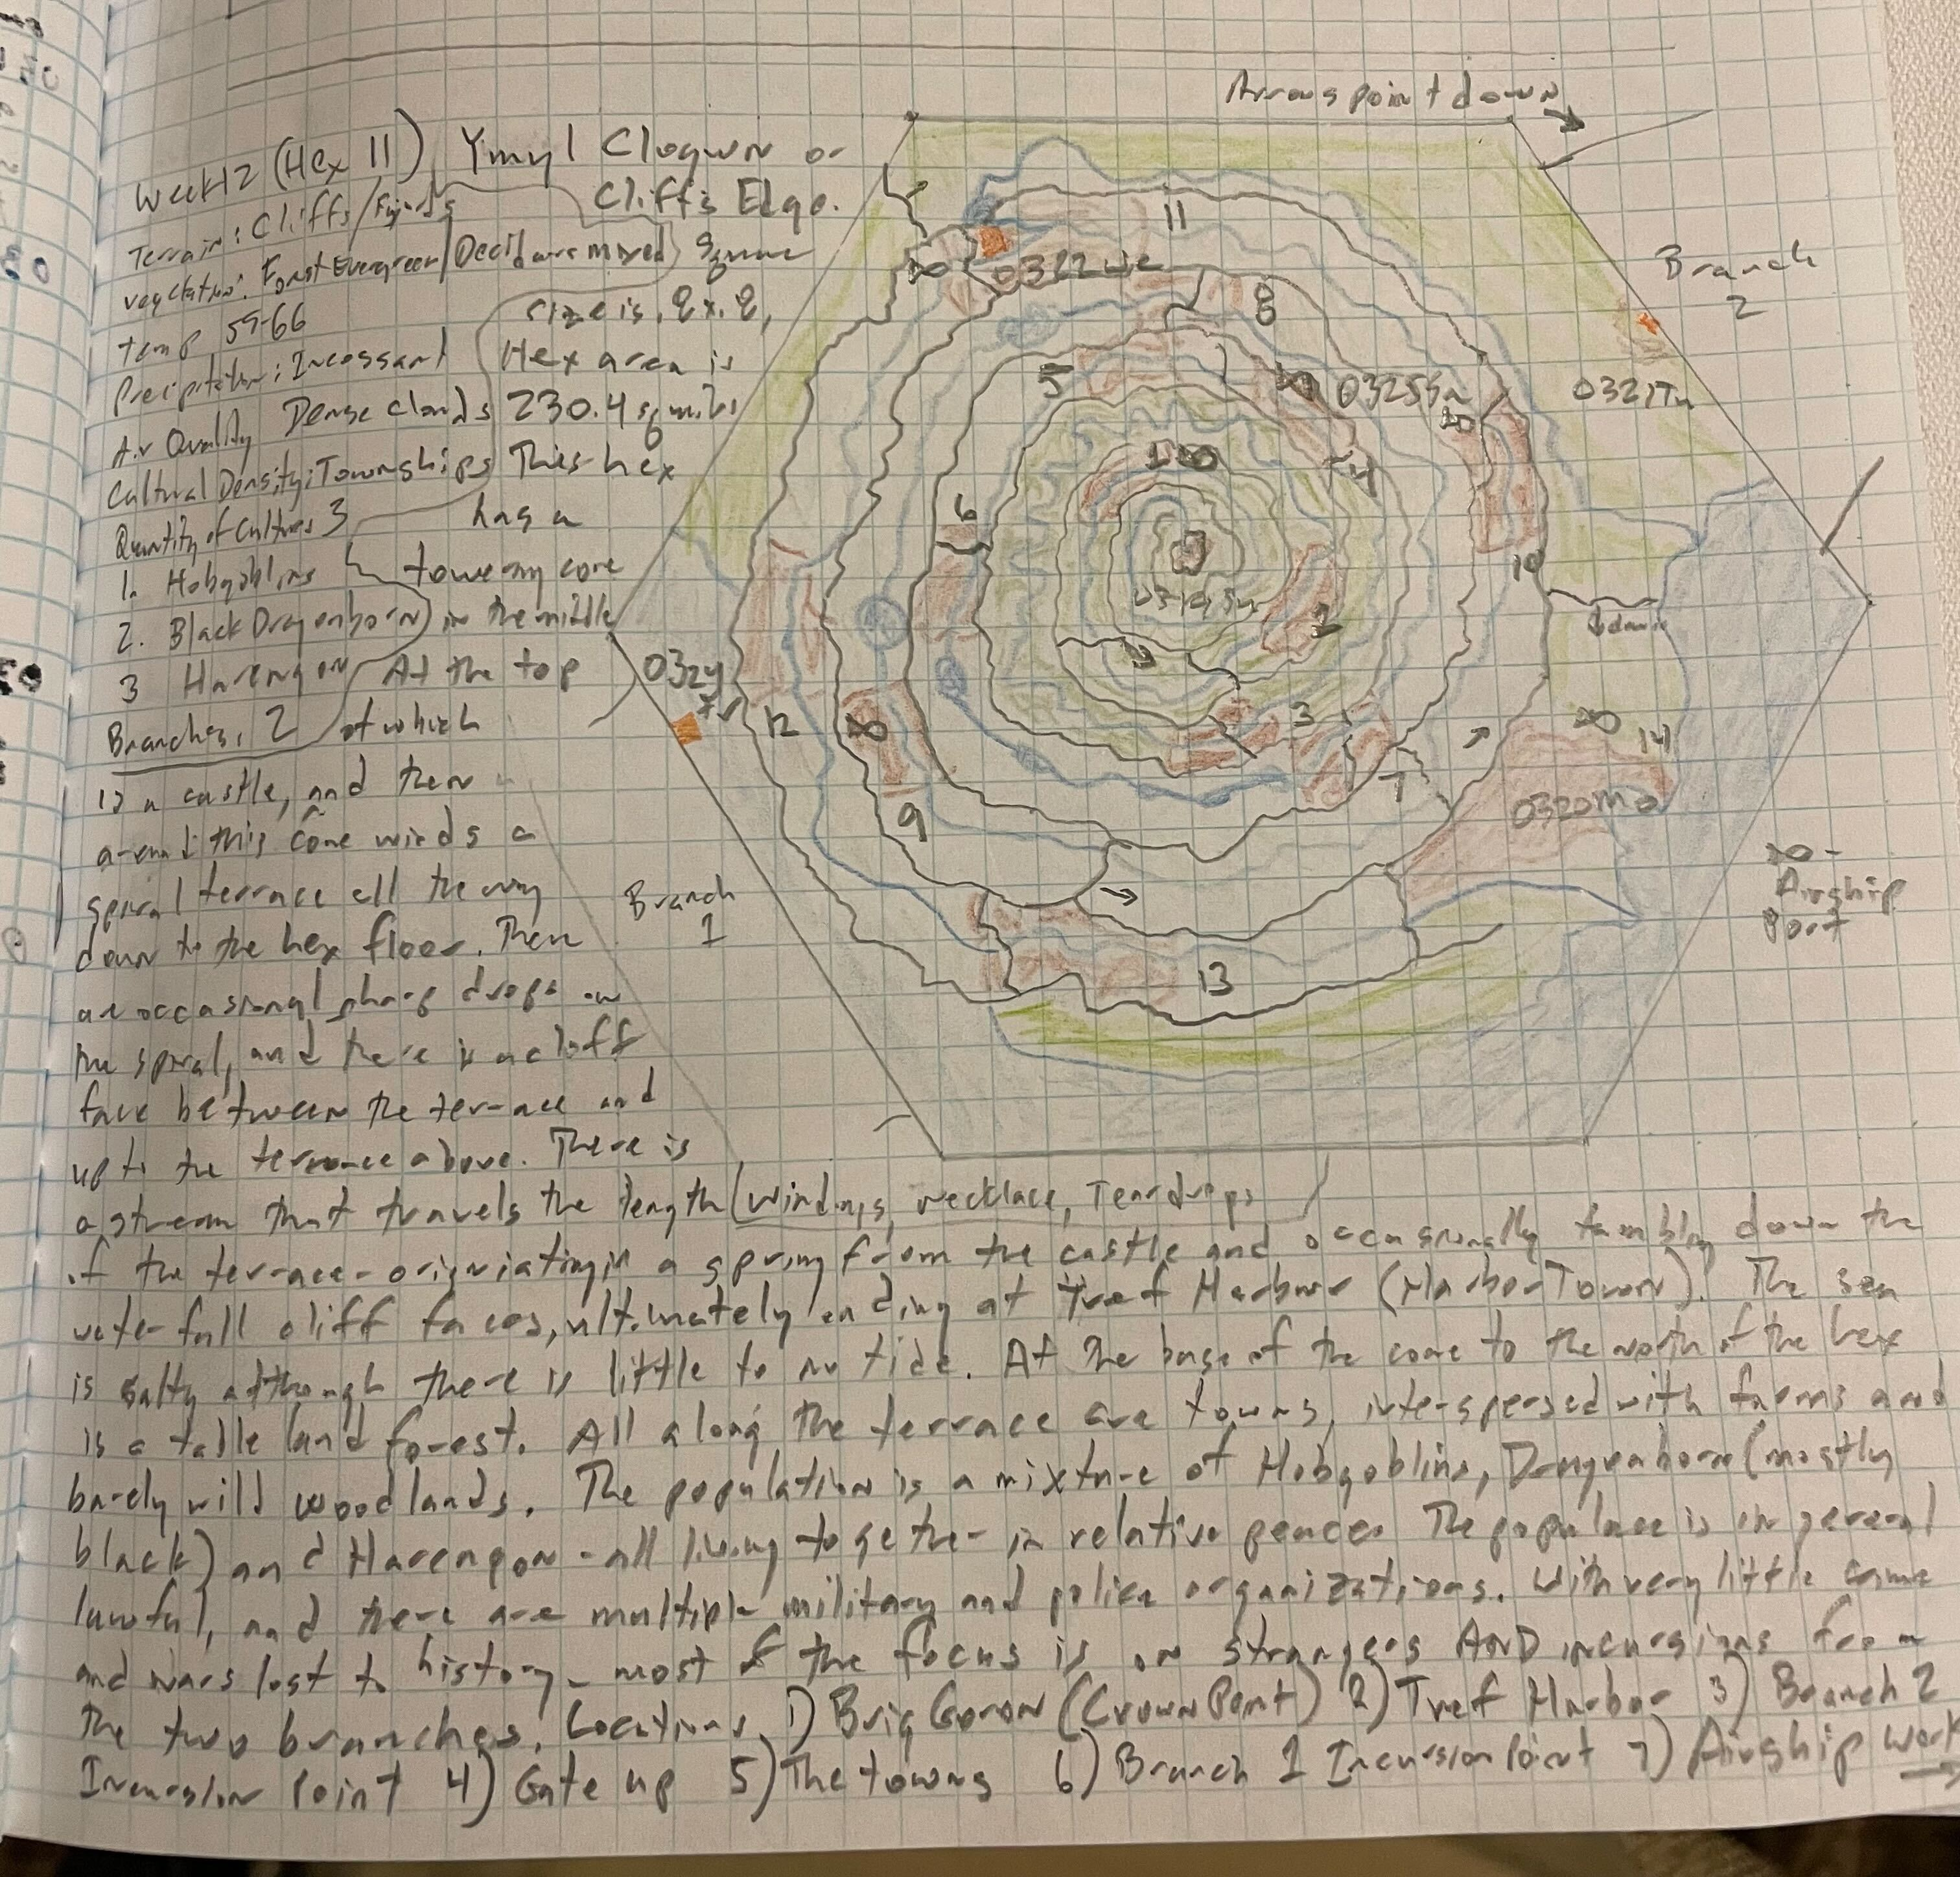 Arrows point down
Week 12 (Hex 11) Ymyl Clogwn or
Cliffs Edge.
Terrain: Cliffs/Fjords
Vegetation: Forst Evergreen/Decid are mixed) Square
size is .8 x .8,
temp 59-66
Precipitation: Incessant
Hex area is
Air Quality Dense clouds 230.4 sq miles
Cultural Density: Townships This hex
Quantity of Cultures 3
has a
1. Hobgoblins
towering core
2. Black Dragonborn in the middle
3 Harengon At the top
Branches, 2 of which
is a castle, and then
around this cone winds a
spiral terrace all the way
down to the hex floor. There
are occasional sharp drops in
the spiral, and there is a cliff
face between the terrace and
up to the terrace above. There is
a stream that travels the length (Windings, necklace, Teardrops
of the terrace - originiating in a spring from the castle and occasionally tumbling down the
waterfall cliff faces, ultimately ending at Tref Harbwr (Harbor Town). The sea
is salty although there is little to no tide. At the base of the cone to the north of the hex
is a table land forest. All along the terrace are towns, interspersed with farms and
barely wild woodlands. The population is a mixture of Hobgoblins, Dragonborn (mostly
black) and Harengon - all living together in relative peace. The populace is in general
lawful, and there are multiple military and police organizations. With very little crime
and wars lost to history - most of the focus is on strangers AND incursions from
the two branches. Locations 1) Brig Goron (Crown Point) 2) Tref Harbor 3) Branch 2
Incursion Point 4) Gate up 5) The towns 6) Branch 1 Incursion Point 7) Airship Work
11
0322We
8
5
0325Sa
10
4
1
6
2
3
7
9
12
13
14
10
down
0320Mo
0321Tu
Branch
2
Branch
1
- Airship
Port